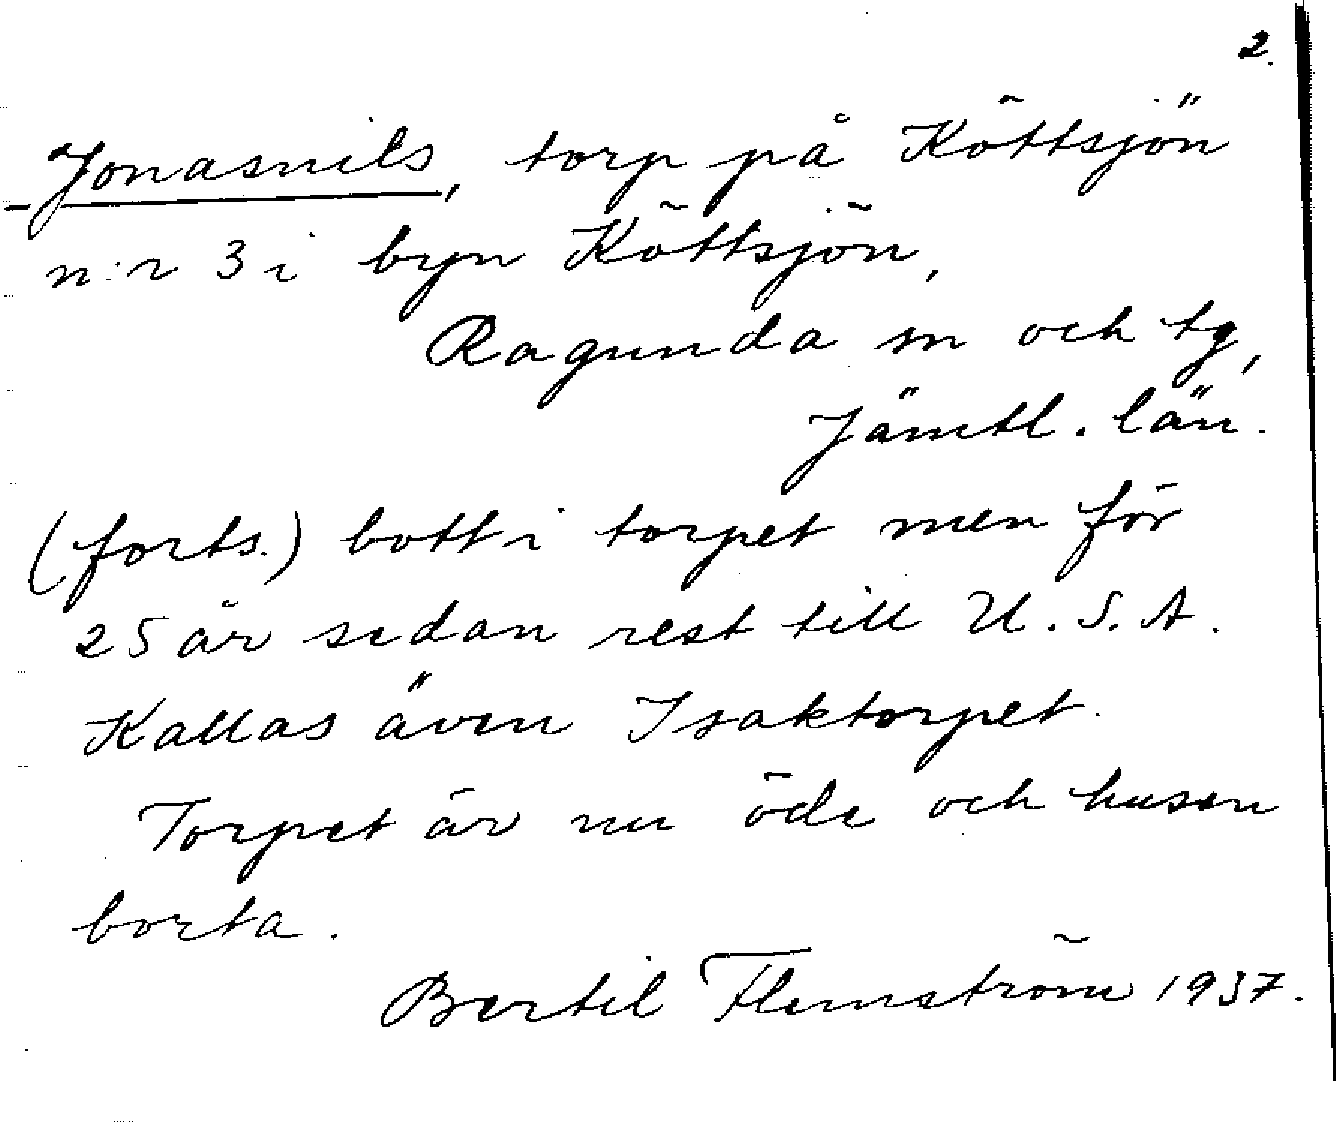 2.
Jonasnils, torp på Köttsjön
n:r 3 i byn Köttsjön,
Ragunda sn och tg,
Jämtl. län.
(forts.) bott i torpet men för
25 år sedan rest till U.S.A.
Kallas även Isaktorpet.
Torpet är nu öde och husen
borta.
Bertil Flemström 1937.